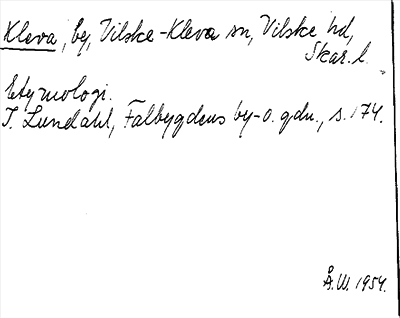 Kleva, by, Vilske-Kleva sn, Vilske hd,
Skar. l.
Etymologi.
I. Lundahl, Falbygdens by-o. gdn., s. 174.
Å.W. 1954.